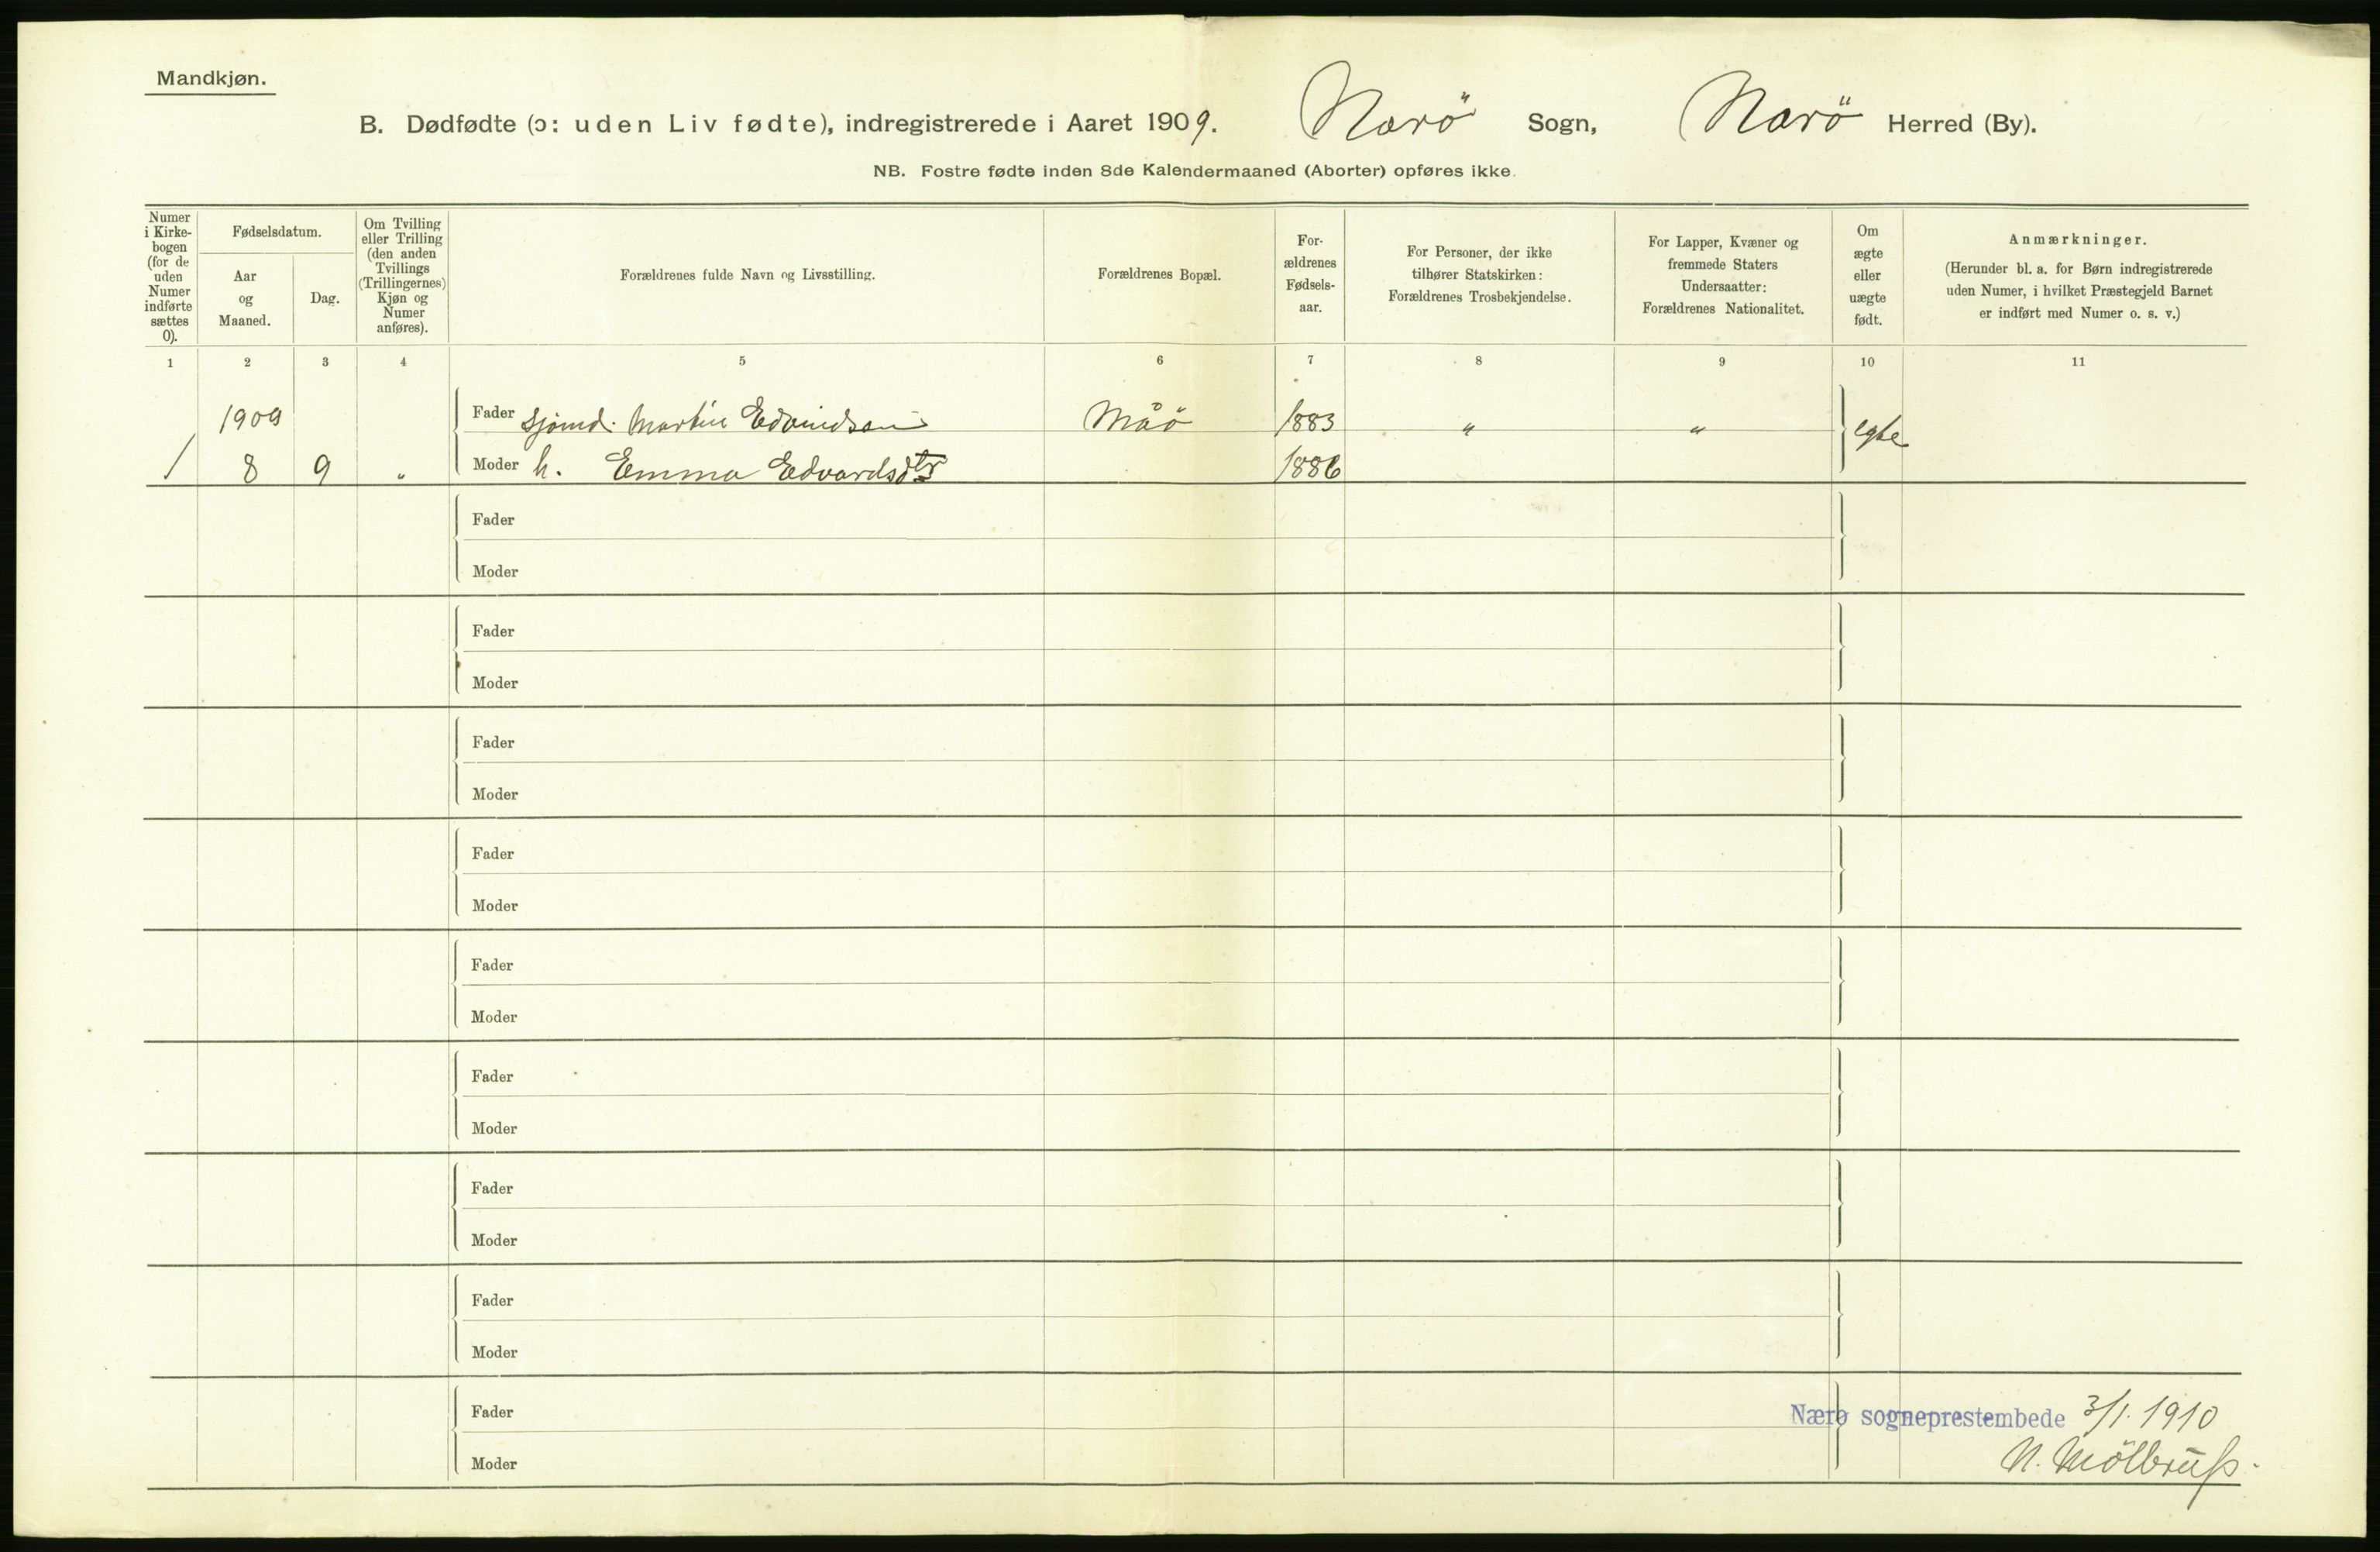 Mandkjøn.
B. Dødfødte (ɔ: uden Liv fødte), indregistrerede i Aaret 1909. Nærö Sogn, Nærö Herred (By).
NB. Fostre fødte inden 8de Kalendermaaned (Aborter) opføres ikke.
Numer
i Kirke-
bogen
(for de
uden
Numer
indførte
sættes
0).
Fødselsdatum.
Aar
og
Maaned.
Dag.
Om Tvilling
eller Trilling
(den anden
Tvillings
(Trillingernes)
Kjøn og
Numer
anføres).
Forældrenes fulde Navn og Livsstilling.
Forældrenes Bopæl.
For-
ældrenes
Fødsels-
aar.
For Personer, der ikke
tilhører Statskirken:
Forældrenes Trosbekjendelse.
For Lapper, Kvæner og
fremmede Staters
Undersaatter:
Forældrenes Nationalitet.
Om
ægte
eller
uægte
født.
Anmærkninger.
(Herunder bl. a. for Børn indregistrerede
uden Numer, i hvilket Præstegjeld Barnet
er indført med Numer o. s. v.)
1 2 3 4 5 6 7 8 9 10 11
1909 Fader sjömd. Martin Edvindsen Måö 1883 " " egte
1 8 9 " Moder h. Emma Edvardsdtr 1886
Fader
Moder
Fader
Moder
Fader
Moder
Fader
Moder
Fader
Moder
Fader
Moder
Fader
Moder
Fader
Moder
Fader
Nærø sogneprestembede 3/1. 1910
Moder
N.